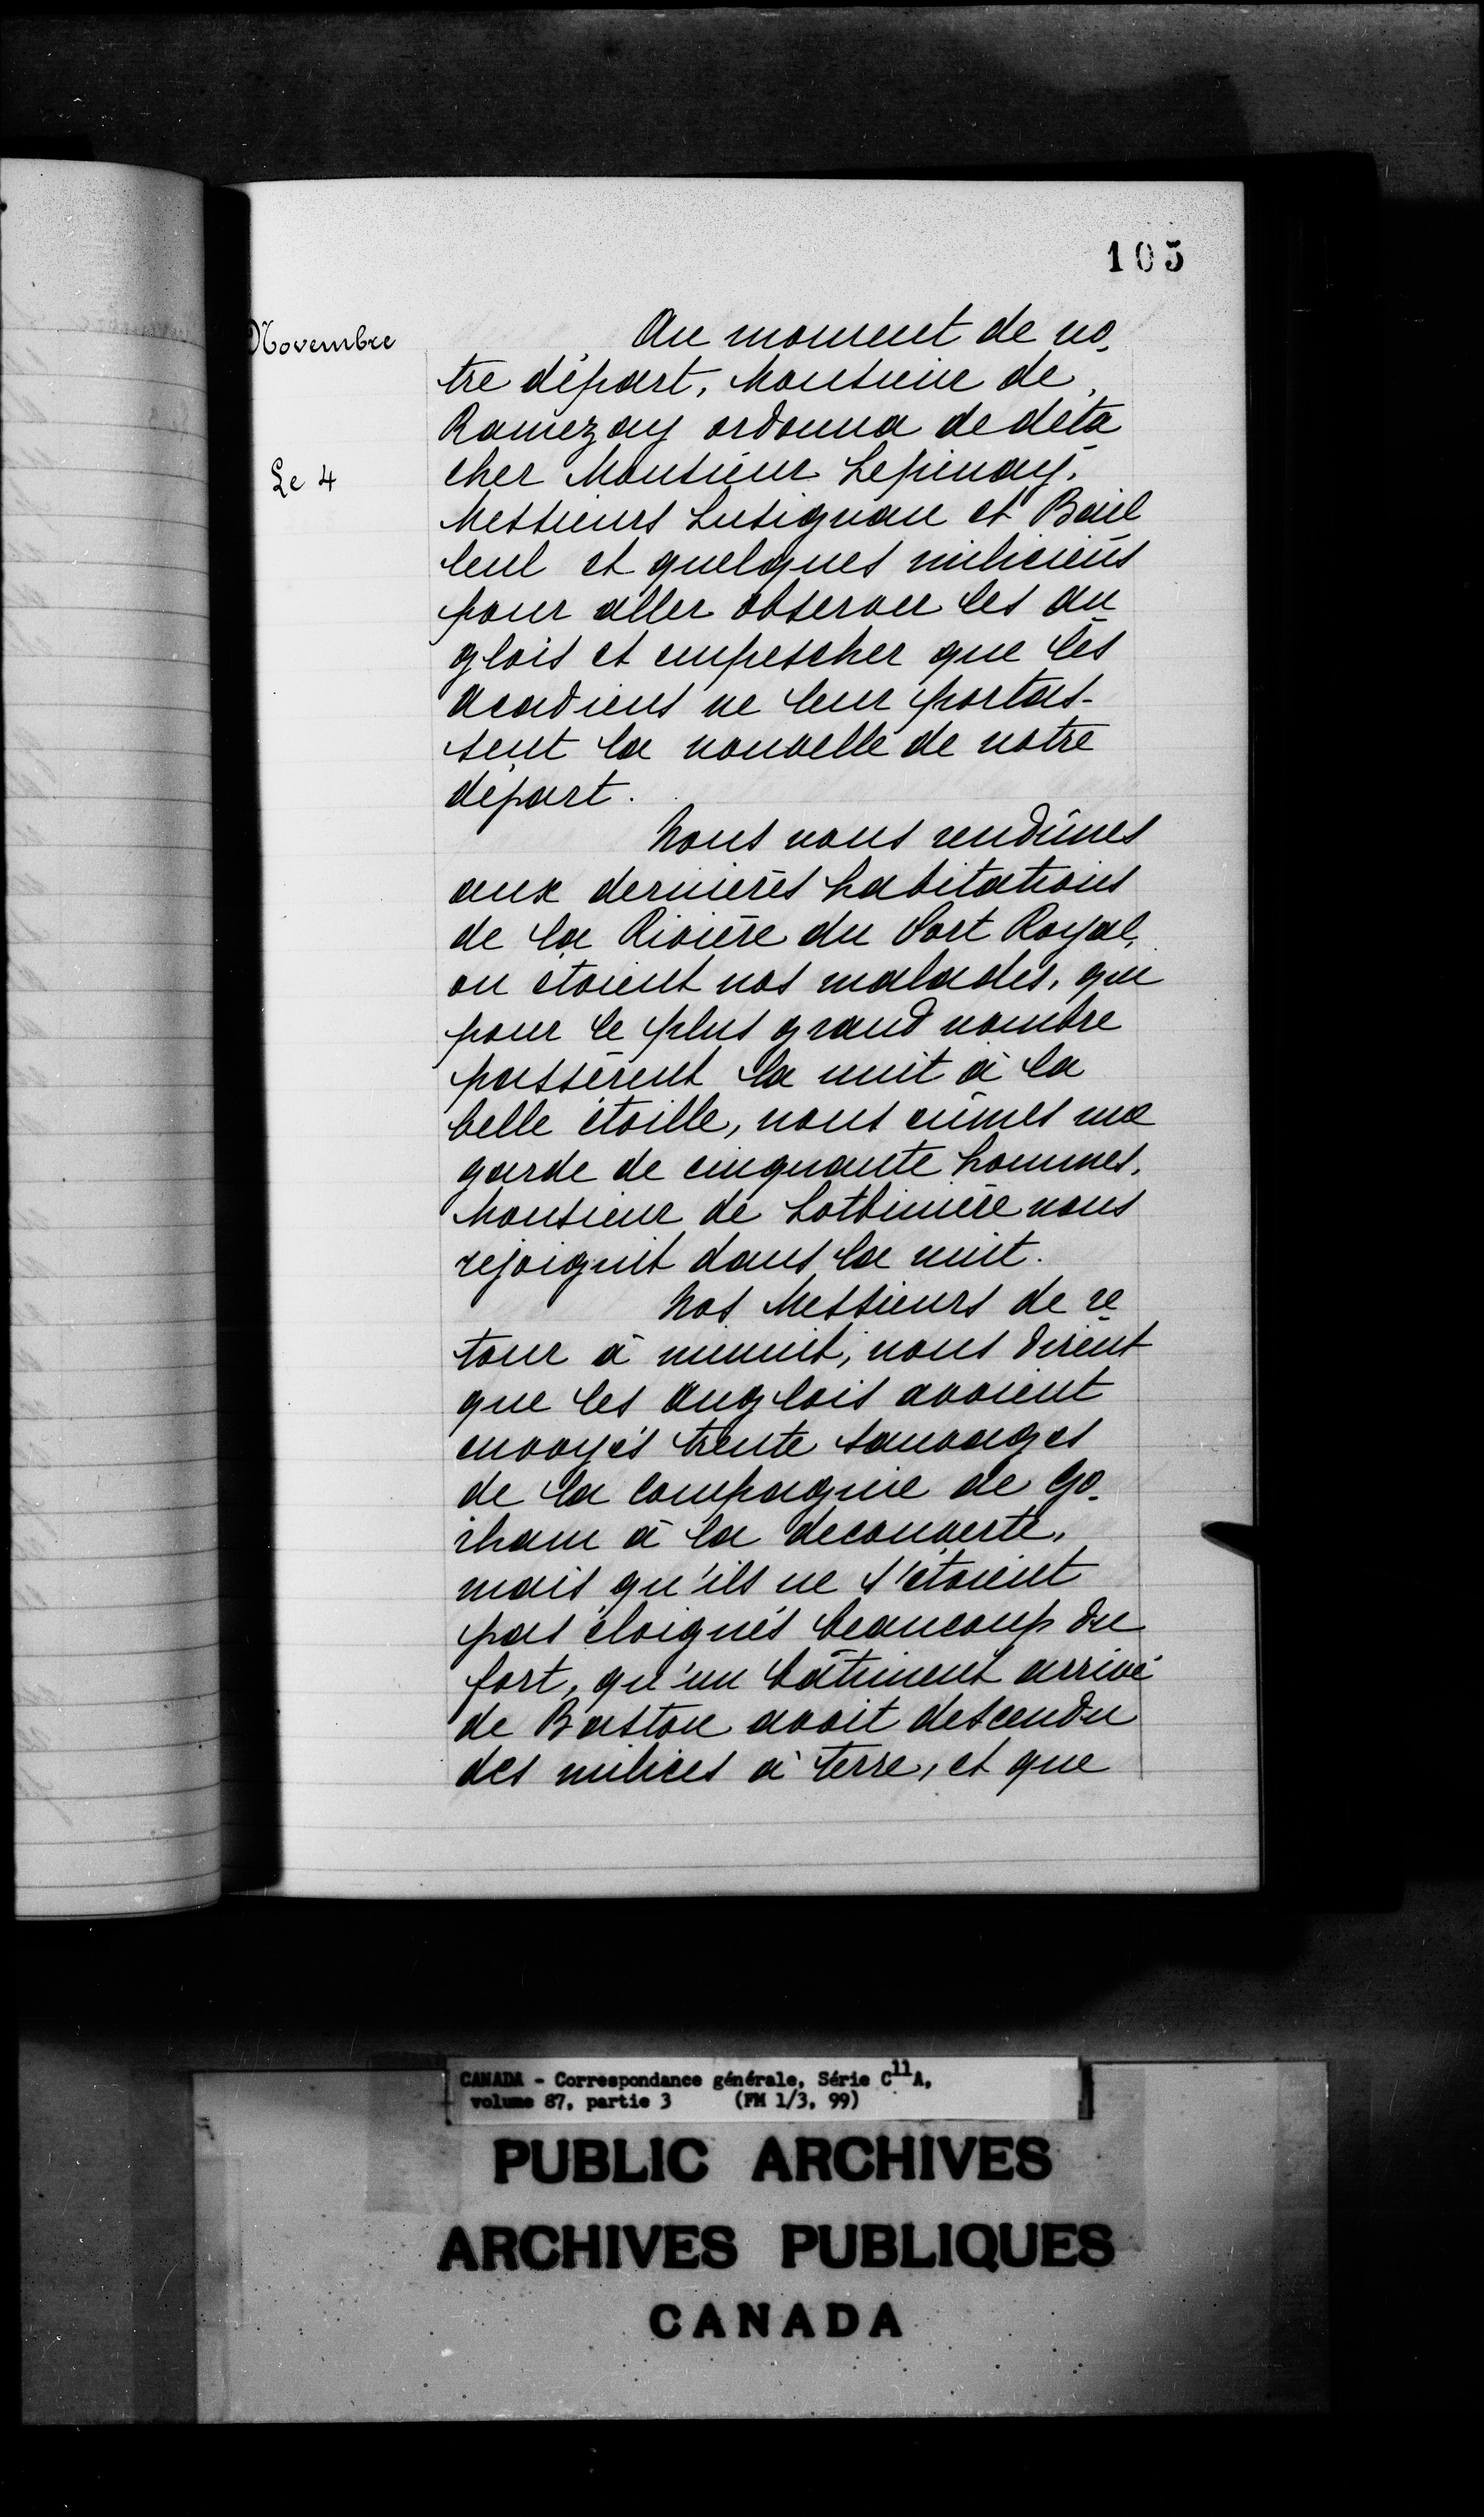 105
Novembre
Au moment de no-
tre départ, Monsieur de
Ramezay ordonna de déta
Le 4
cher Monsieur Lepinay,
Messieurs Lusignan et Bail
leul et quelques miliciens
pour aller observer les An
glois et empescher que les
Acadiens ne leur portas-
sent la nouvelle de notre
départ.
Nous nous rendîmes
aux dernieres habitations
de la Riviere du Port Royal,
ou étoient nos malades, qui
pour le plus grand nombre
passèrent la nuit à la
belle étoille, nous eûmes une
garde de cinquante hommes,
Monsieur de Lotbiniere nous
rejoignit dans la nuit.
Nos Messieurs de re
tour à minuit, nous dirent
que les Anglois avoient
envoyés trente sauvages
de la compagnie de Go-
rham à la decouverte,
mais qu'ils ne s'étoient
pas éloignés beaucoup du
fort, qu'un bâtiment arrivé
de Baston avoit descendu
des milices à terre, et que
CANADA - Correspondance générale, Série C11A,
volume 87, partie 3 (FM 1/3, 99)
PUBLIC ARCHIVES
ARCHIVES PUBLIQUES
CANADA